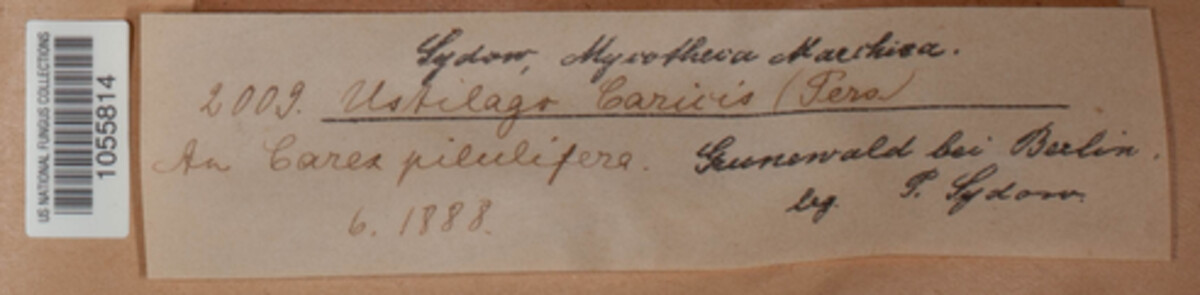 US NATIONAL FUNGUS COLLECTIONS
1055814
Sydow, Mycotheca Marchica.
2009. Ustilago Caricis (Pers.)
An Carex pilulifera. Grunewald bei Berlin.
6. 1888. leg. P. Sydow.